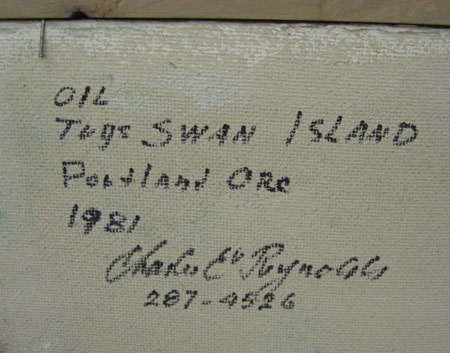 OIL
Tugs SWAN ISLAND
Portland Ore
1981
Charles E Reynolds
287-4526